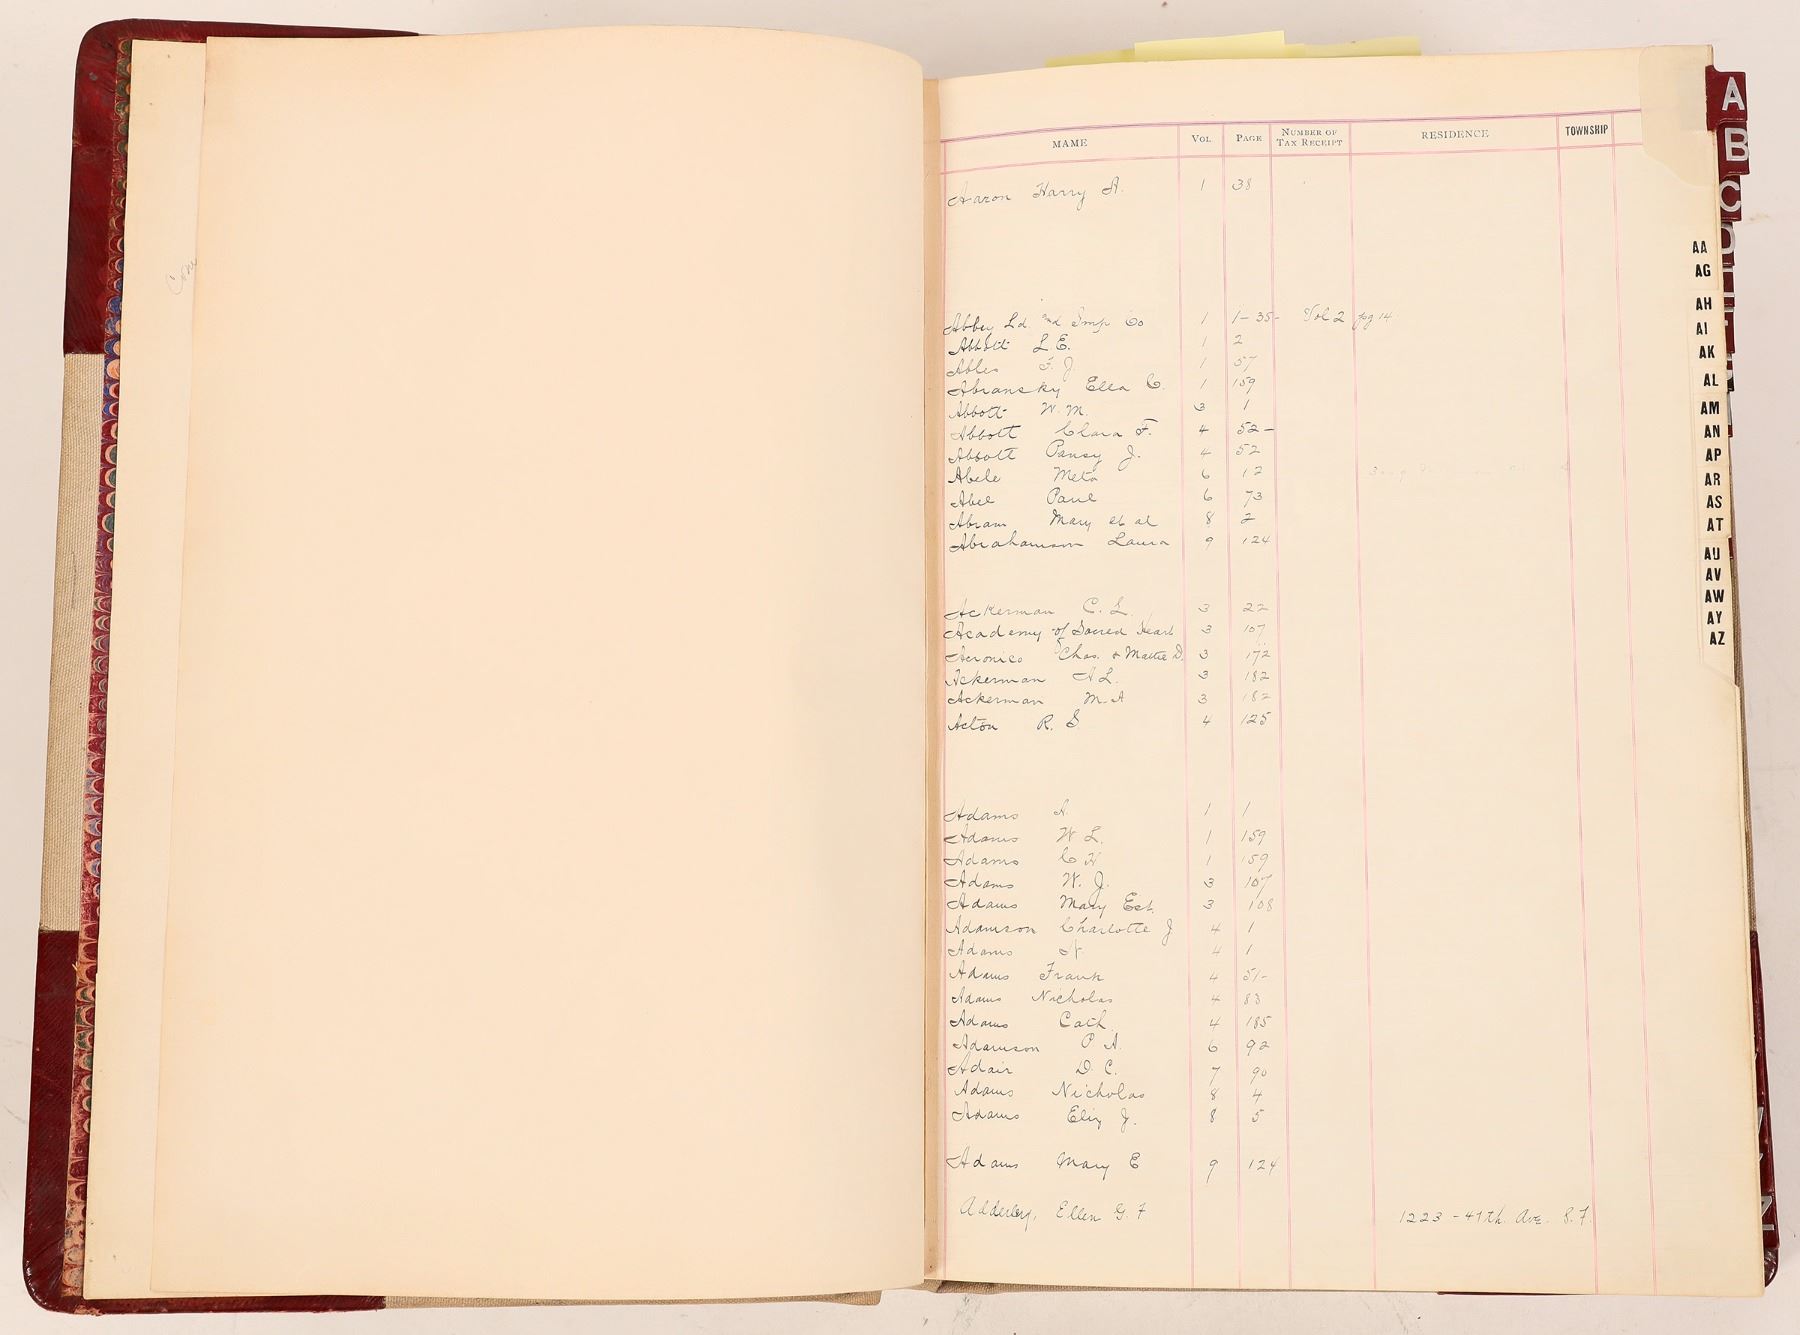 Com
MAME VOL PAGE NUMBER OF TAX RECEIPT RESIDENCE TOWNSHIP
Aaron Harry A. 1 38
Abbey Ld. and Imp Co 1 1-35- Vol 2 pg 14
Abbott L.E. 1 2
Ables F. J. 1 57
Abransky Ella C. 1 159
Abbott W. M. 3 1
Abbott Clara F. 4 52-
Abbott Pansy J. 4 52
Abele Meta 6 12
Abel Paul 6 73
Abram Mary et al 8 2
Abrahamson Laura 9 124
Ackerman C. L. 3 22
Academy of Sacred Heart 3 107
Acronico Chas. & Mattie D. 3 172
Ackerman A L. 3 182
Ackerman M. A 3 182
Acton R. S. 4 125
Adams A. 1 1
Adams W L. 1 159
Adams C H 1 159
Adams W. J. 3 107
Adams Mary Est. 3 108
Adamson Charlotte J 4 1
Adams N. 4 1
Adams Frank 4 51-
Adams Nicholas 4 83
Adams Cath. 4 185
Adamson P A. 6 92
Adair D. C. 7 90
Adams Nicholas 8 4
Adams Eliz J. 8 5
Adams Mary E 9 124
Adderley, Ellen G. F 1223 - 47th. Ave. S.F.
A
B
C
D
AA
AG
AH
AI
AK
AL
AM
AN
AP
AR
AS
AT
AU
AV
AW
AY
AZ
Z